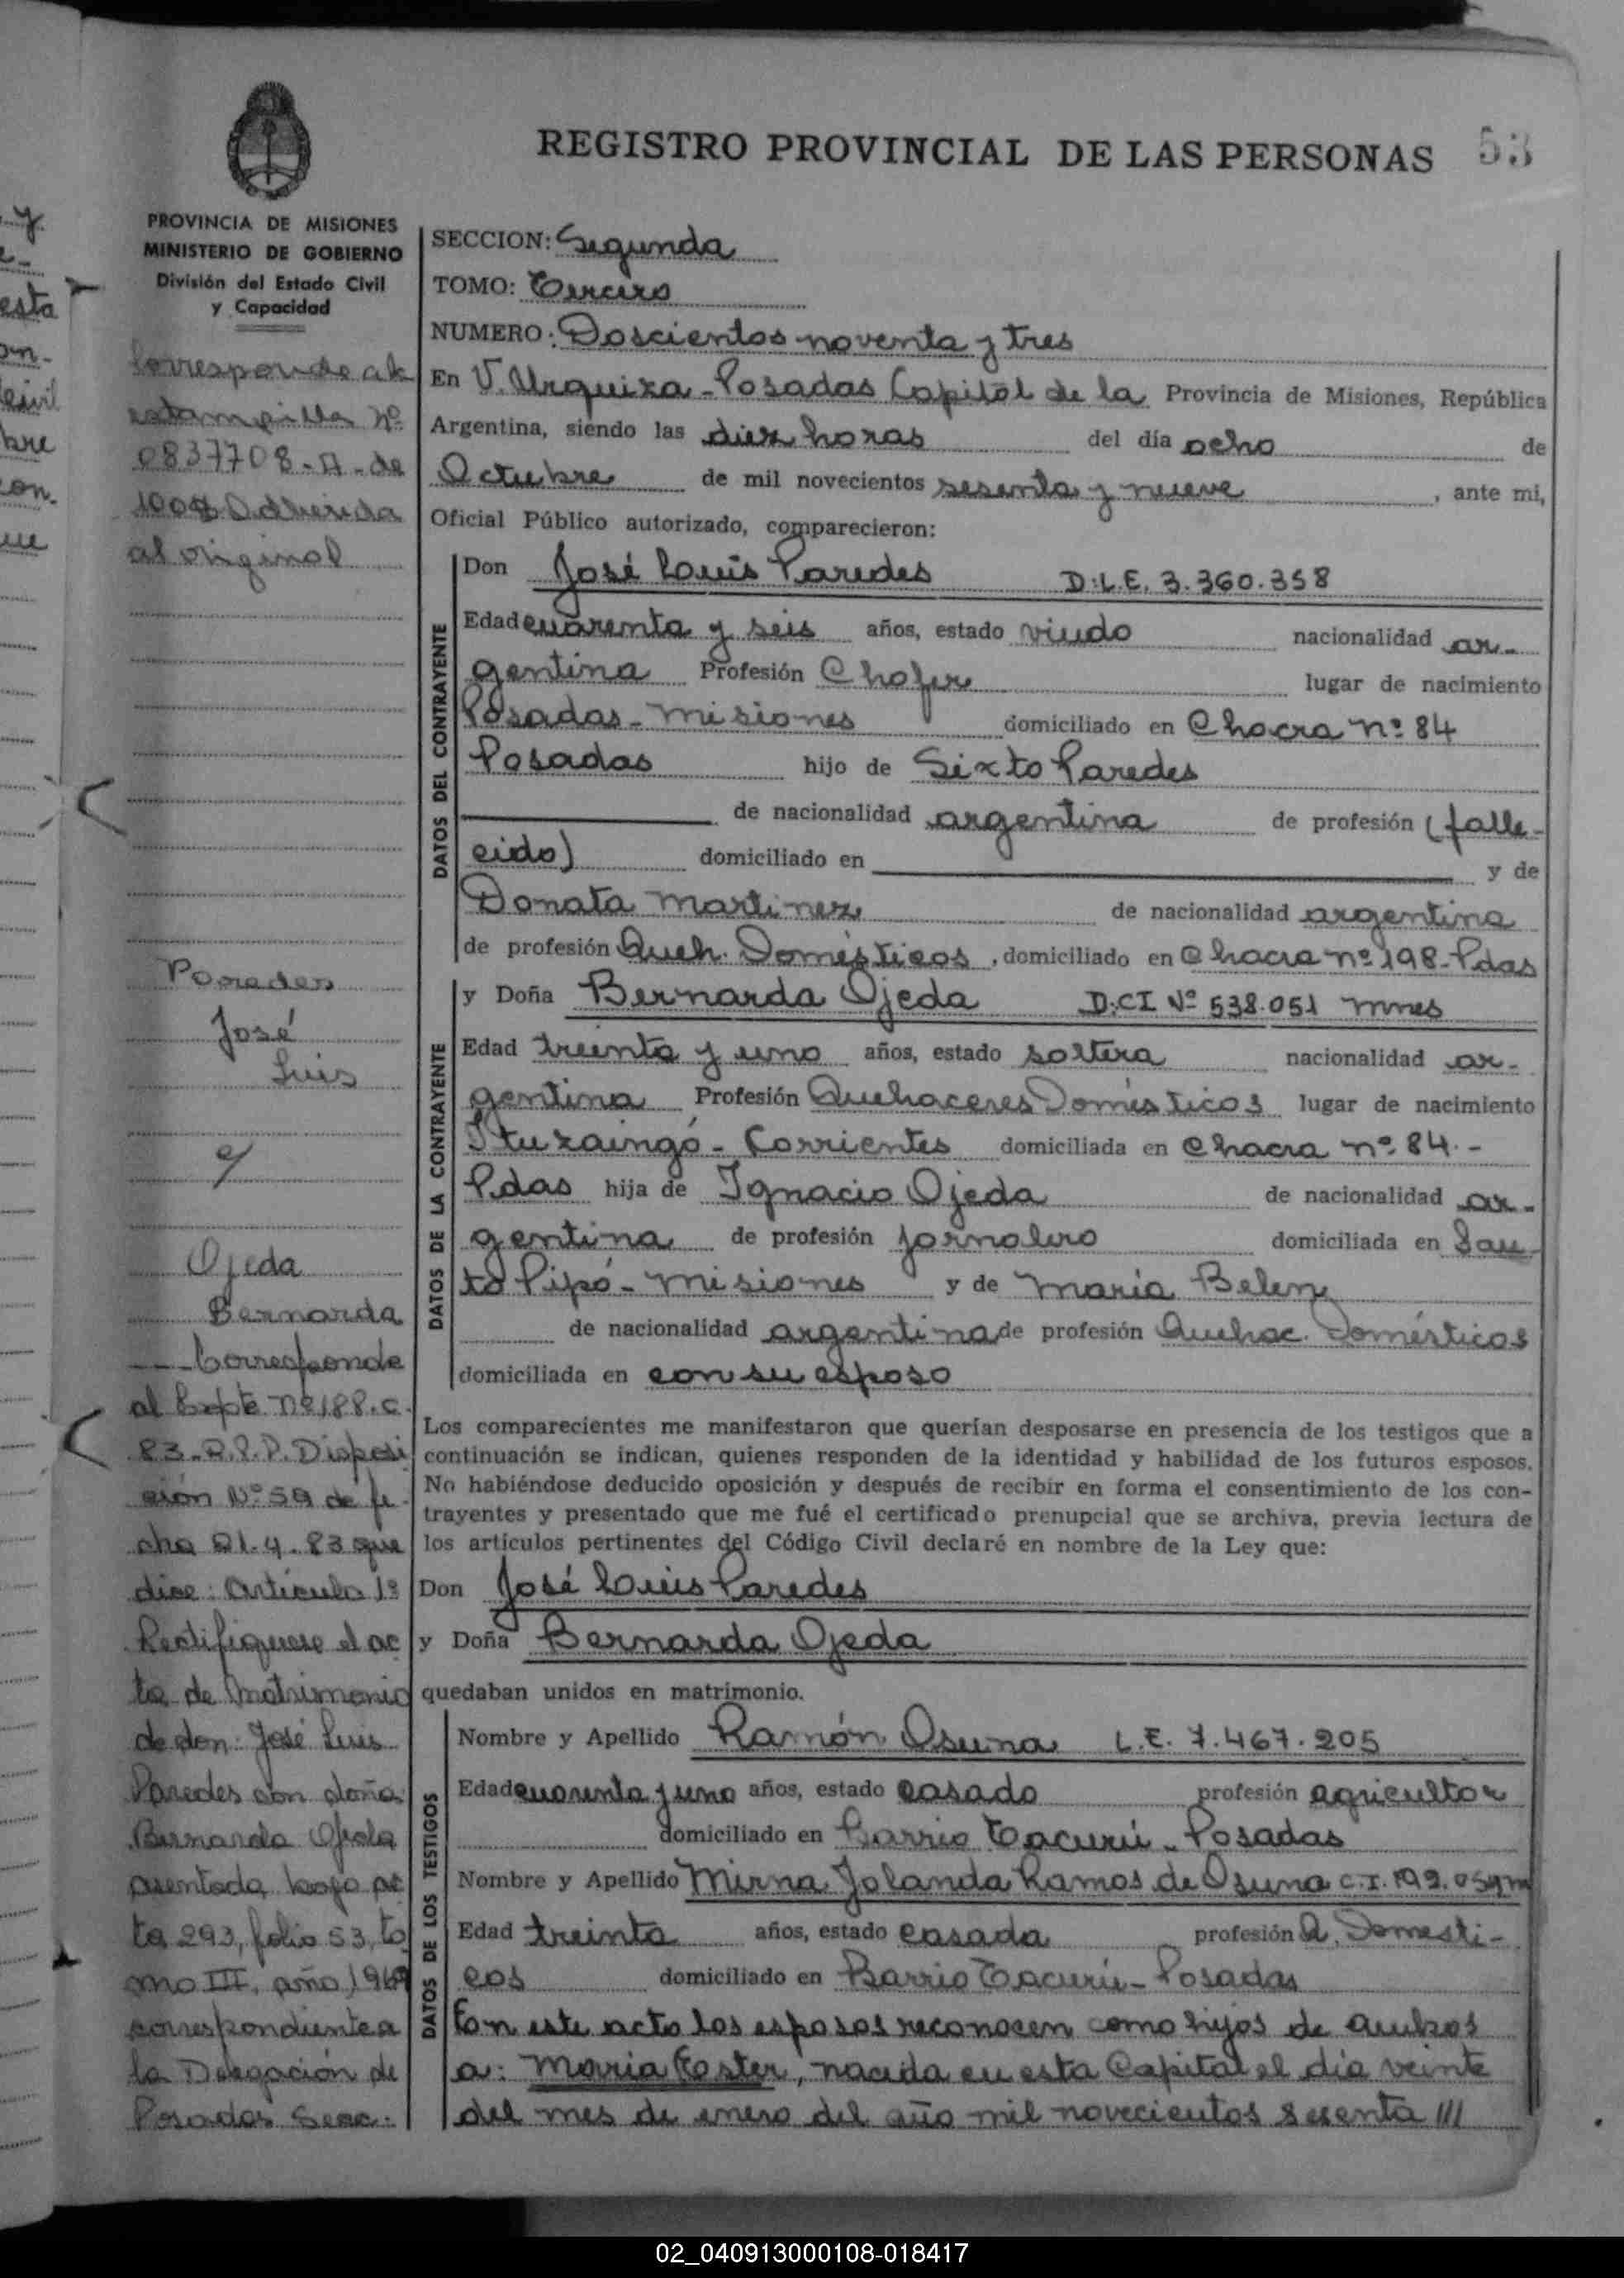 REGISTRO PROVINCIAL DE LAS PERSONAS
53
PROVINCIA DE MISIONES
MINISTERIO DE GOBIERNO
División del Estado Civil
y Capacidad
Corresponde a la
estampilla Nº
0837708-A-de
100$ Adherida
al original
Paredes
José
Luis
c/
Ojeda
Bernarda
Corresponde
al Expte nº 188.c.
83-R.P.P. Disposi
ción Nº 59 de fe-
cha 21.4.83 que
dice: Artículo 1º
Rectifiquese el ac
ta de Matrimonio
de don: José Luis
Paredes con doña
Bernarda Ojeda
asentada bajo ac
ta 293, folio 53, to
mo III, año 1969
correspondiente a
la Delegación de
Posadas Secc.
SECCION: Segunda
TOMO: Tercero
NUMERO: Doscientos noventa y tres
En V. Urquiza - Posadas Capital de la Provincia de Misiones, República
Argentina, siendo las diez horas del día ocho de
Octubre de mil novecientos sesenta y nueve, ante mi,
Oficial Público autorizado, comparecieron:
DATOS DEL CONTRAYENTE
Don José Luis Paredes D.L.E. 3.360.358
Edad cuarenta y seis años, estado viudo nacionalidad ar-
gentina Profesión Chofer lugar de nacimiento
Posadas - Misiones domiciliado en Chacra nº 84
Posadas hijo de Sixto Paredes
de nacionalidad argentina de profesión (falle-
cido) domiciliado en y de
Donata Martinez de nacionalidad argentina
de profesión Queh. Domésticos, domiciliado en Chacra nº 198-Pdas
DATOS DE LA CONTRAYENTE
y Doña Bernarda Ojeda D.CI Nº 538.051 mnes
Edad treinta y uno años, estado soltera nacionalidad ar-
gentina Profesión Quehaceres Domésticos lugar de nacimiento
Ituzaingó - Corrientes domiciliada en Chacra nº 84.-
Pdas hija de Ignacio Ojeda de nacionalidad ar-
gentina de profesión jornalero domiciliada en San
to Pipó - Misiones y de María Belen
de nacionalidad argentina de profesión Quehac. Domésticos
domiciliada en con su esposo
Los comparecientes me manifestaron que querían desposarse en presencia de los testigos que a
continuación se indican, quienes responden de la identidad y habilidad de los futuros esposos.
No habiéndose deducido oposición y después de recibir en forma el consentimiento de los con-
trayentes y presentado que me fué el certificado prenupcial que se archiva, previa lectura de
los artículos pertinentes del Código Civil declaré en nombre de la Ley que:
Don José Luis Paredes
y Doña Bernarda Ojeda
quedaban unidos en matrimonio.
DATOS DE LOS TESTIGOS
Nombre y Apellido Ramón Osuna L.E. 7.467.205
Edad cuarenta y uno años, estado casado profesión agricultor
domiciliado en Barrio Tacurú - Posadas
Nombre y Apellido Mirna Jolanda Ramos de Osuna C.I.
Edad treinta años, estado casada profesión Q. Domesti-
cos domiciliado en Barrio Tacurú - Posadas
En este acto los esposos reconocen como hijos de ambos
a: Maria Ester, nacida en esta Capital el día veinte
del mes de enero del año mil novecientos sesenta ///
02_040913000108-018417